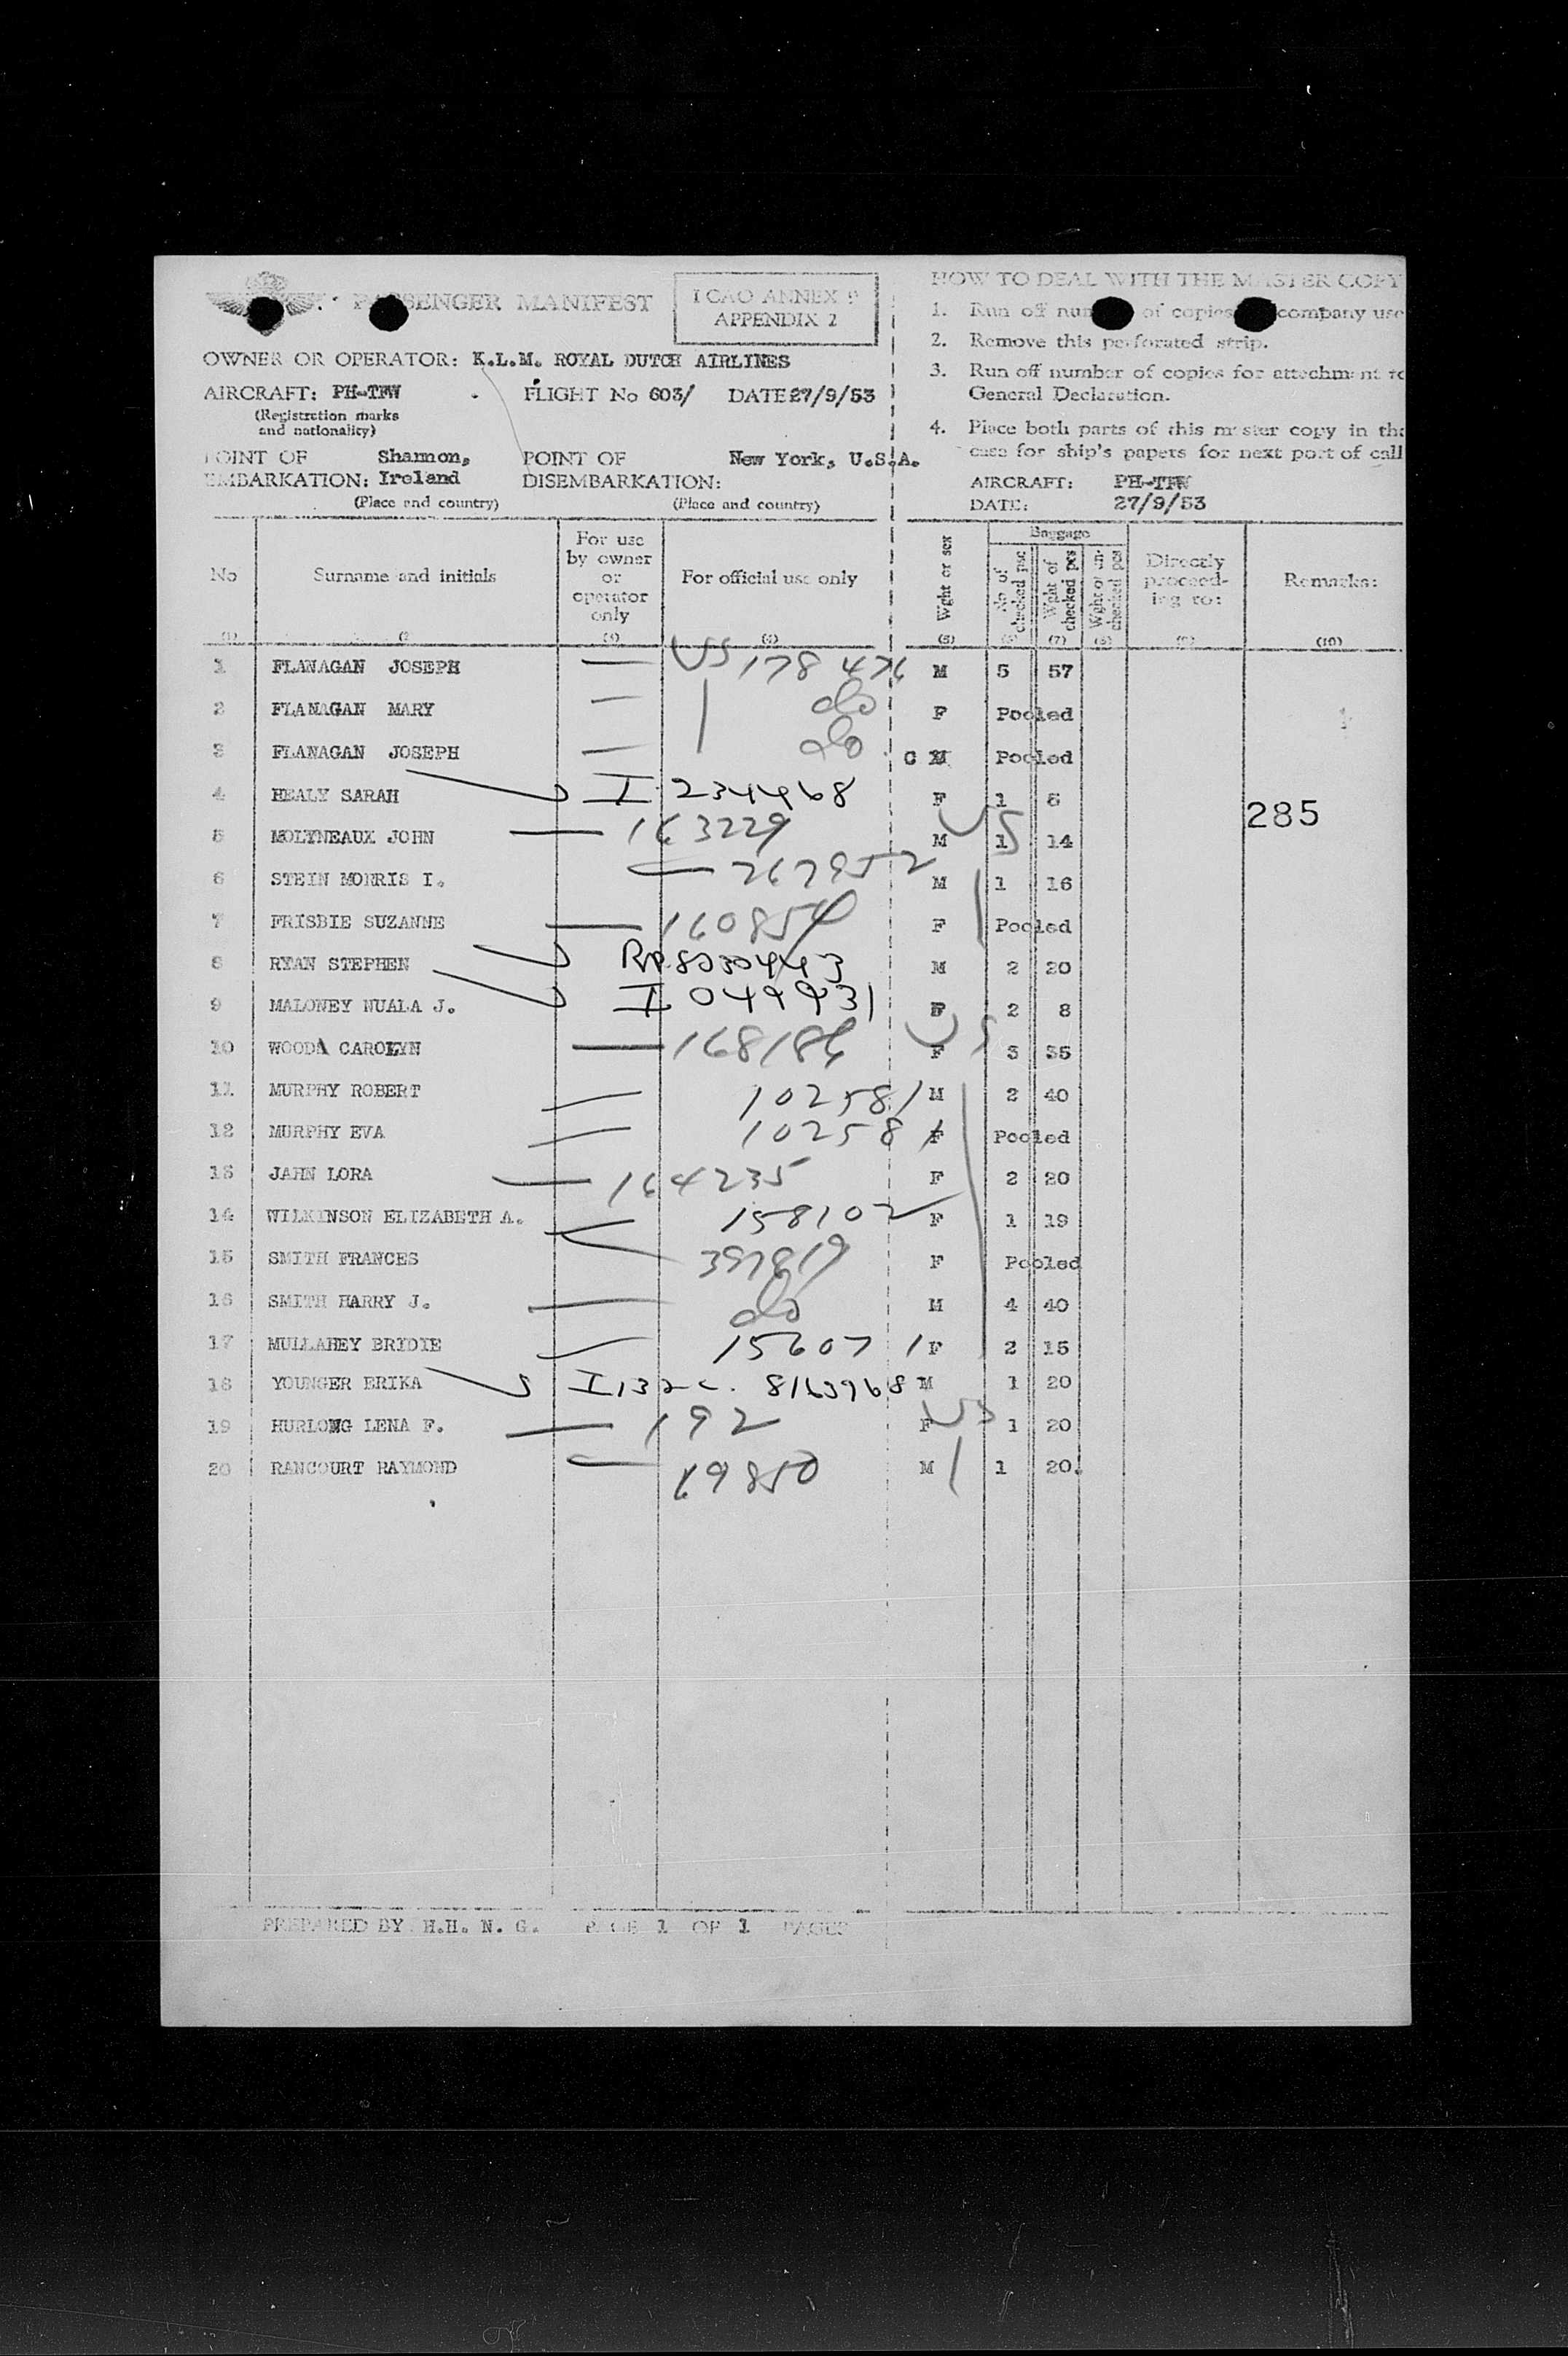 PASSENGER MANIFEST
ICAO ANNEX 9
APPENDIX 2
OWNER OR OPERATOR: K.L.M. ROYAL DUTCH AIRLINES
AIRCRAFT: PH-TFW FLIGHT No 603/ DATE 27/9/53
(Registration marks
and nationality)
POINT OF Shannon, POINT OF New York, U.S.A.
EMBARKATION: Ireland DISEMBARKATION:
(Place and country) (Place and country)
HOW TO DEAL WITH THE MASTER COPY
1. Run off of copies company use
2. Remove this perforated strip.
3. Run off number of copies for attachment to
General Declaration.
4. Place both parts of this master copy in the
case for ship's papers for next port of call
AIRCRAFT: PH-TFW
DATE: 27/9/53
No Surname and initials For use by owner or operator only For official use only Wght or sex Baggage No of checked pcs Wght of checked pcs Wght of un-checked pcs Directly proceed-ing to: Remarks:
1 FLANAGAN JOSEPH — US 178 476 M 5 57
2 FLANAGAN MARY — do F Pooled
3 FLANAGAN JOSEPH — do C M Pooled
4 HEALY SARAH I 234468 F 1
285
5 MOLYNEAUX JOHN — 163229 M US 1 14
6 STEIN MORRIS I. — 267952 M 1 16
7 FRISBIE SUZANNE — 160854 F Pooled
8 RYAN STEPHEN RP 8030443 M 2 20
9 MALONEY NUALA J. I 049931 F 2 8
10 WOODA CAROLYN — 168186 US F 3 35
11 MURPHY ROBERT — 102581 M 2 40
12 MURPHY EVA — 102581 F Pooled
13 JAHN LORA — 164235 F 2 20
14 WILKINSON ELIZABETH A. — 158102 F 1 19
15 SMITH FRANCES — 397819 F Pooled
16 SMITH HARRY J. — do M 4 40
17 MULLAHEY BRIDIE — 156071 F 2 15
18 YOUNGER ERIKA 8163968 M 1 20
19 HURLONG LENA F. — 192 F US 1 20
20 RANCOURT RAYMOND — 69850 M 1 20.
PREPARED BY H.H. N. G. PAGE 1 OF 1 PAGES